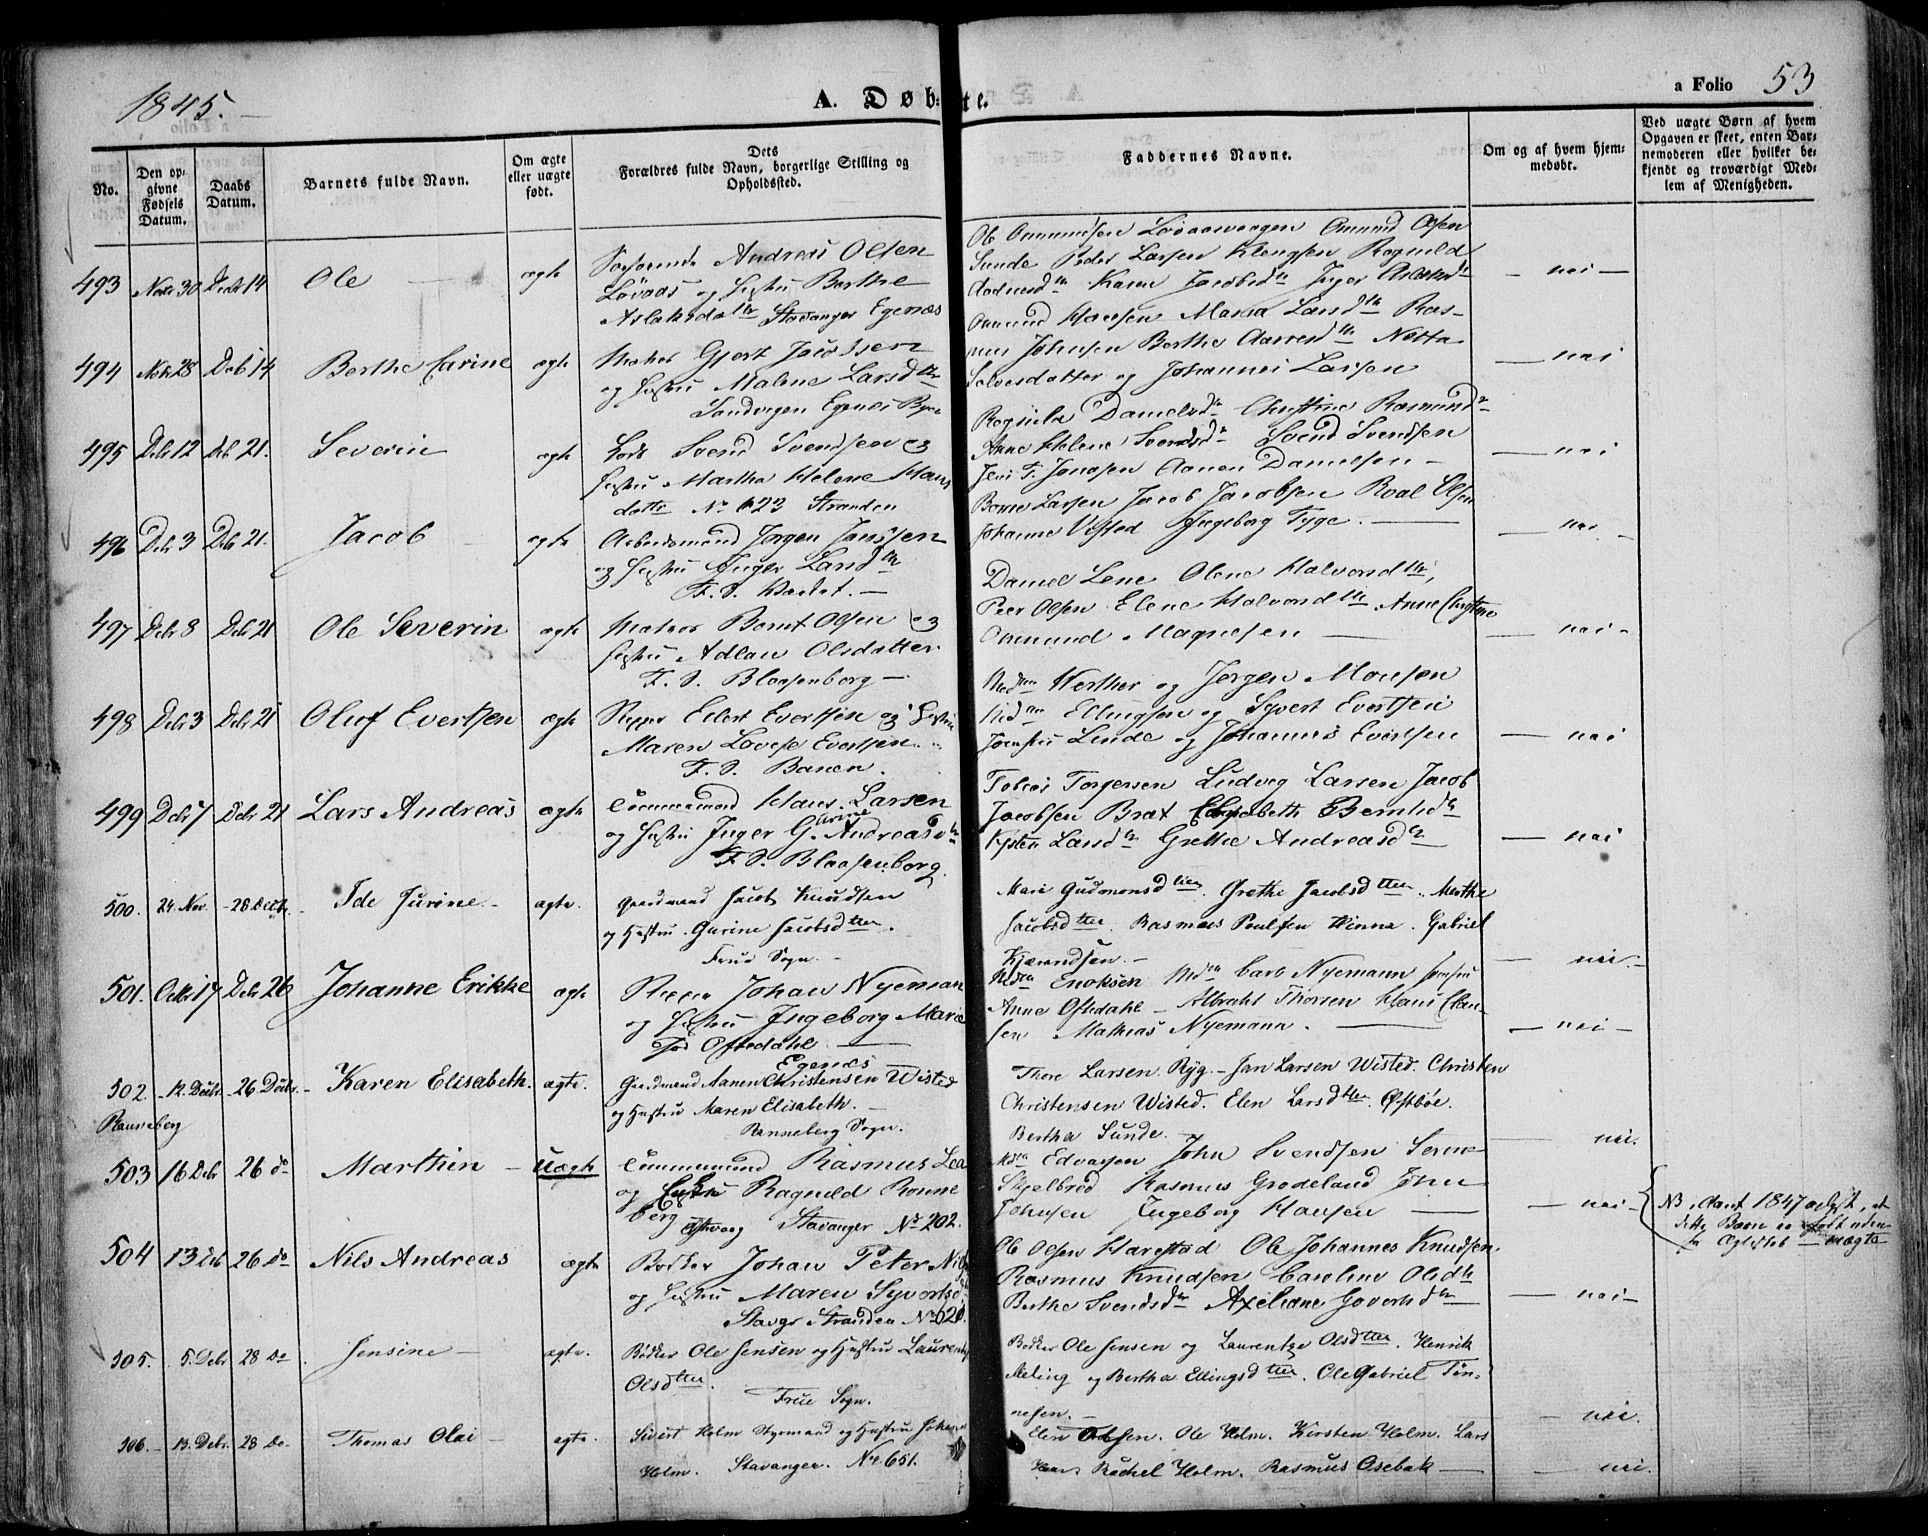 1845.
A. Døbte.
a Folio 53
No.
Den opgivne Fødsels Datum.
Daabs Datum.
Barnets fulde Navn.
Om ægte eller uægte født.
Dets Forældres fulde Navn, borgerlige Stilling og Opholdssted.
Faddernes Navne.
Om og af hvem hjemmedøbt.
Ved uægte Børn af hvem Opgaven er skeet, enten Barnemoderen eller hvilket bekjendt og troværdigt Medlem af Menigheden.
493 Nov 30 Decbr 14 Ole ægte Andreas Olsen
Løvaas og Hustru Berthe
Aslaksdatter Stavanger Egenæs
Ole Ommundsen Ommund Olsen
Sunde Peder Larsen Klengsen Ragnild
Karen Jacobsd Inger Aslaksd
nei
494 Nov 28 Deb 14 Berthe Carine ægte Matros Gjert Jacobsen
og Hustru Malene Larsdtter
Sandvigen Egenes
Ommund Hansen Maria Larsdtr Ras-
mus Johnsen Berthe Aarresdtr Netta
Salvesdatter og Johannes Larsen
nei
495 Debr 12 Deb 21. Severin ægte Lods Svend Svendsen og
Hustru Martha Helene Hans
datter No 623 Stranden
Ragnila Danielsd Christine Rasmusd
Anne Helene Svendsd Svend Svendsen
Jens T. Jonassen Aanen Danielsen
nei
496 Debr 3 Debr 21. Jacob ægte Arbeidsmand Jørgen Janssen
og Hustru Inger Larsdtr
F. S.
Borre Larsen Jacob Jacobsen Roal Olsen
Johanne Visted Ingeborg Tyge.
nei
497 Debr 8 Debr 21 Ole Severin ægte Matros Bernt Olsen og
Hustru Adlau Olsdatter
F. S. Blaasenborg
Daniel Lene Olene Halvorsdtr,
Peer Olsen Elene Halvorsdtr Anne Christine
Ommund Magnesen
nei
498 Debr 3 Debr 21 Oluf Evertsen ægte Skipper Eilert Evertsen og Hustru
Maren Lovise Evertsen
F. S. Banen.
Madme Werther og Jørgen Monsen
Madme Ellingsen og Syvert Evertsen
Jomfru Linde og Johannes Evertsen
nei
499 Debr 7 Debr 21 Lars Andreas ægte Huusmand Hans Larsen
og Hustru Inger G. Andreasdtr
F. S. Blaasenborg.
Tobias Torgersen Ludvig Larsen Jacob
Jacobsen Brat Elisabeth Berntsd
Larsdtr Grethe Andreasdtr
nei
500. 24. Nov. 28 Decbr. Ide Jurine ægte. Gaardmand Jacob Knudsen
og Hustru Gurine Jacobsdtter.
Frue Sogn.
Mari Gudmonsdtter. Grethe Jacobsdtter. Merthe
Jacobsdtter. Rasmus Poulsen Hinna. Gabriel
Kjærandsen.
nei.
501. Octbr 17 Debr 26 Johanne Erikke ægte Skipper Johan Nyeman
og Hustru Ingeborg Marie
fød Oftedahl
Egenæs
Madm Enoksen Madm Carb Nyemann Jomfru
Anne Oftedahl Albraht Thorsen Klaus Clau-
sen Mathias Nyemann.
nei
502. 12. Decbr. 26 Decbr. Karen Elisabeth. ægte. Gaardmand Aanen Christensen Wisted
og Hustru Maren Elisabeth.
Ranneberg Sogn.
Ranneberg
Thore Larsen Ryg. Jan Larsen Wisted. Christen
Christensen Wisted. Elen Larsdtter Østbøe.
Bertha Sunde.
nei.
503 16 Debr 26 do Marthin Uægte Huusmand Rasmus
og Hustru Ragnild Ronne
berg Stavanger No 202.
Madm Edvarsen John Svendsen Serine
Skjelbred Rasmus Grødeland John
Johnsen Ingeborg Hansen
nei
NB. 1847 oplyst, at
dette Barn er født uden
for Ægteskab uægte
504 13 Deb 26 do Nils Andreas ægte Bødker Johan Peter Nils
og Hustru Maren Syvertsd
Stavgr Stranden No 620.
Ole Olsen Harestad Ole Johannes Knudsen.
Rasmus Knudsen Caroline Olsdtr
Berthe Svendsdtr Axeliane Govertsdtr
nei
505. 5. Debr 28 Do Jensine ægte. Bødker Ole Jensen og Hustru Laurentze
Olsdtter.
Frue Sogn.
Bødker Ole Jensen og Laurentze Olsdtter. Henrik
Meling og Bertha Ellingsdtter. Ole Gabriel Tøn-
nesen.
nei.
506. 13. Debr. 28 Do. Thomas Olai ægte. Sivert Holm Styrmand og Hustru Johanne
Holm. Stavanger. No 651.
Elen Olsen. Ole Holm. Kirsten Holm. Lars
Rachel Holm. Rasmus Osebak
nei.